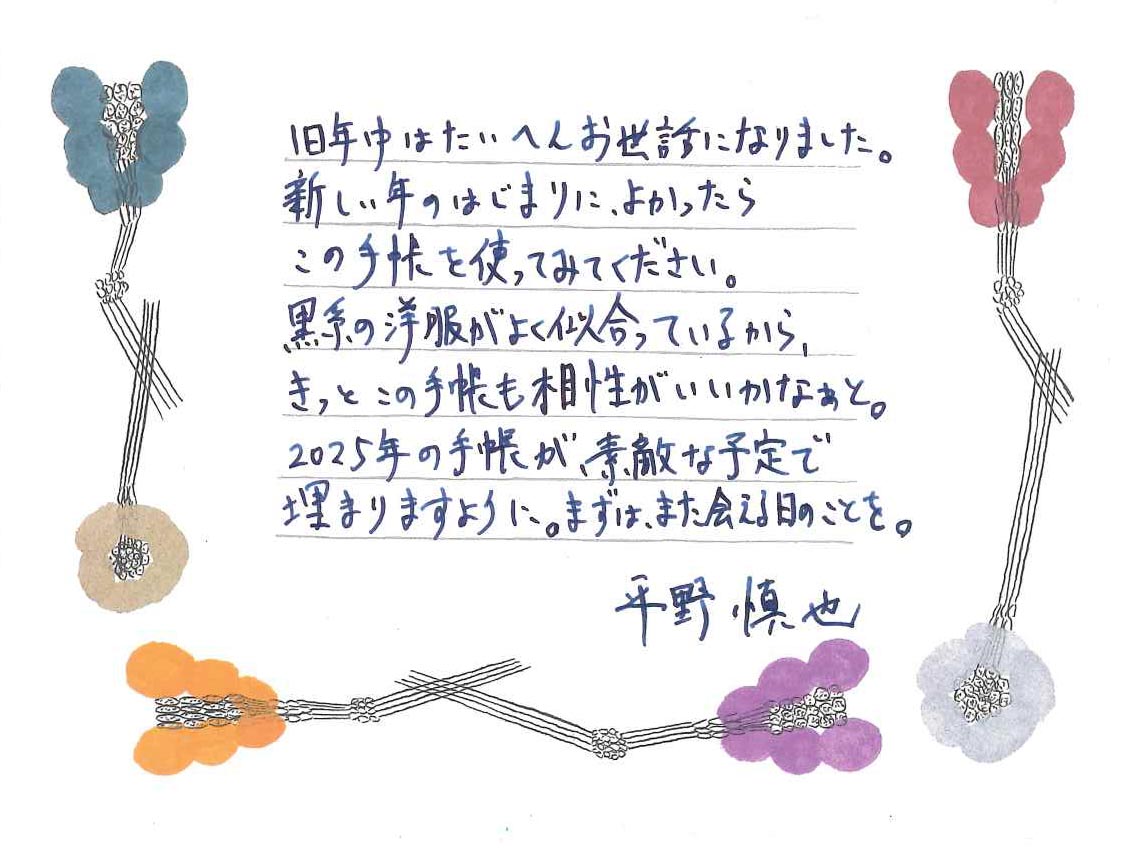 旧年中はたいへんお世話になりました。
新しい年のはじまりに、よかったら
この手帳を使ってみてください。
黒系の洋服がよく似合っているから、
きっとこの手帳も相性がいいかなぁと。
2025年の手帳が、素敵な予定で
埋まりますように。まずは、また会える日のことを。
平野慎也